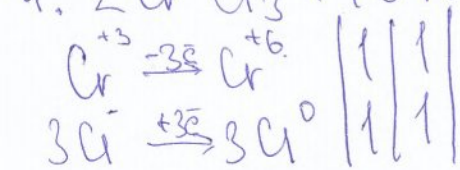 Cr⁺³ –3ē→ Cr⁺⁶ | 1 | 1 |
3Cl⁻ +3ē→ 3Cl⁰ | 1 | 1 |